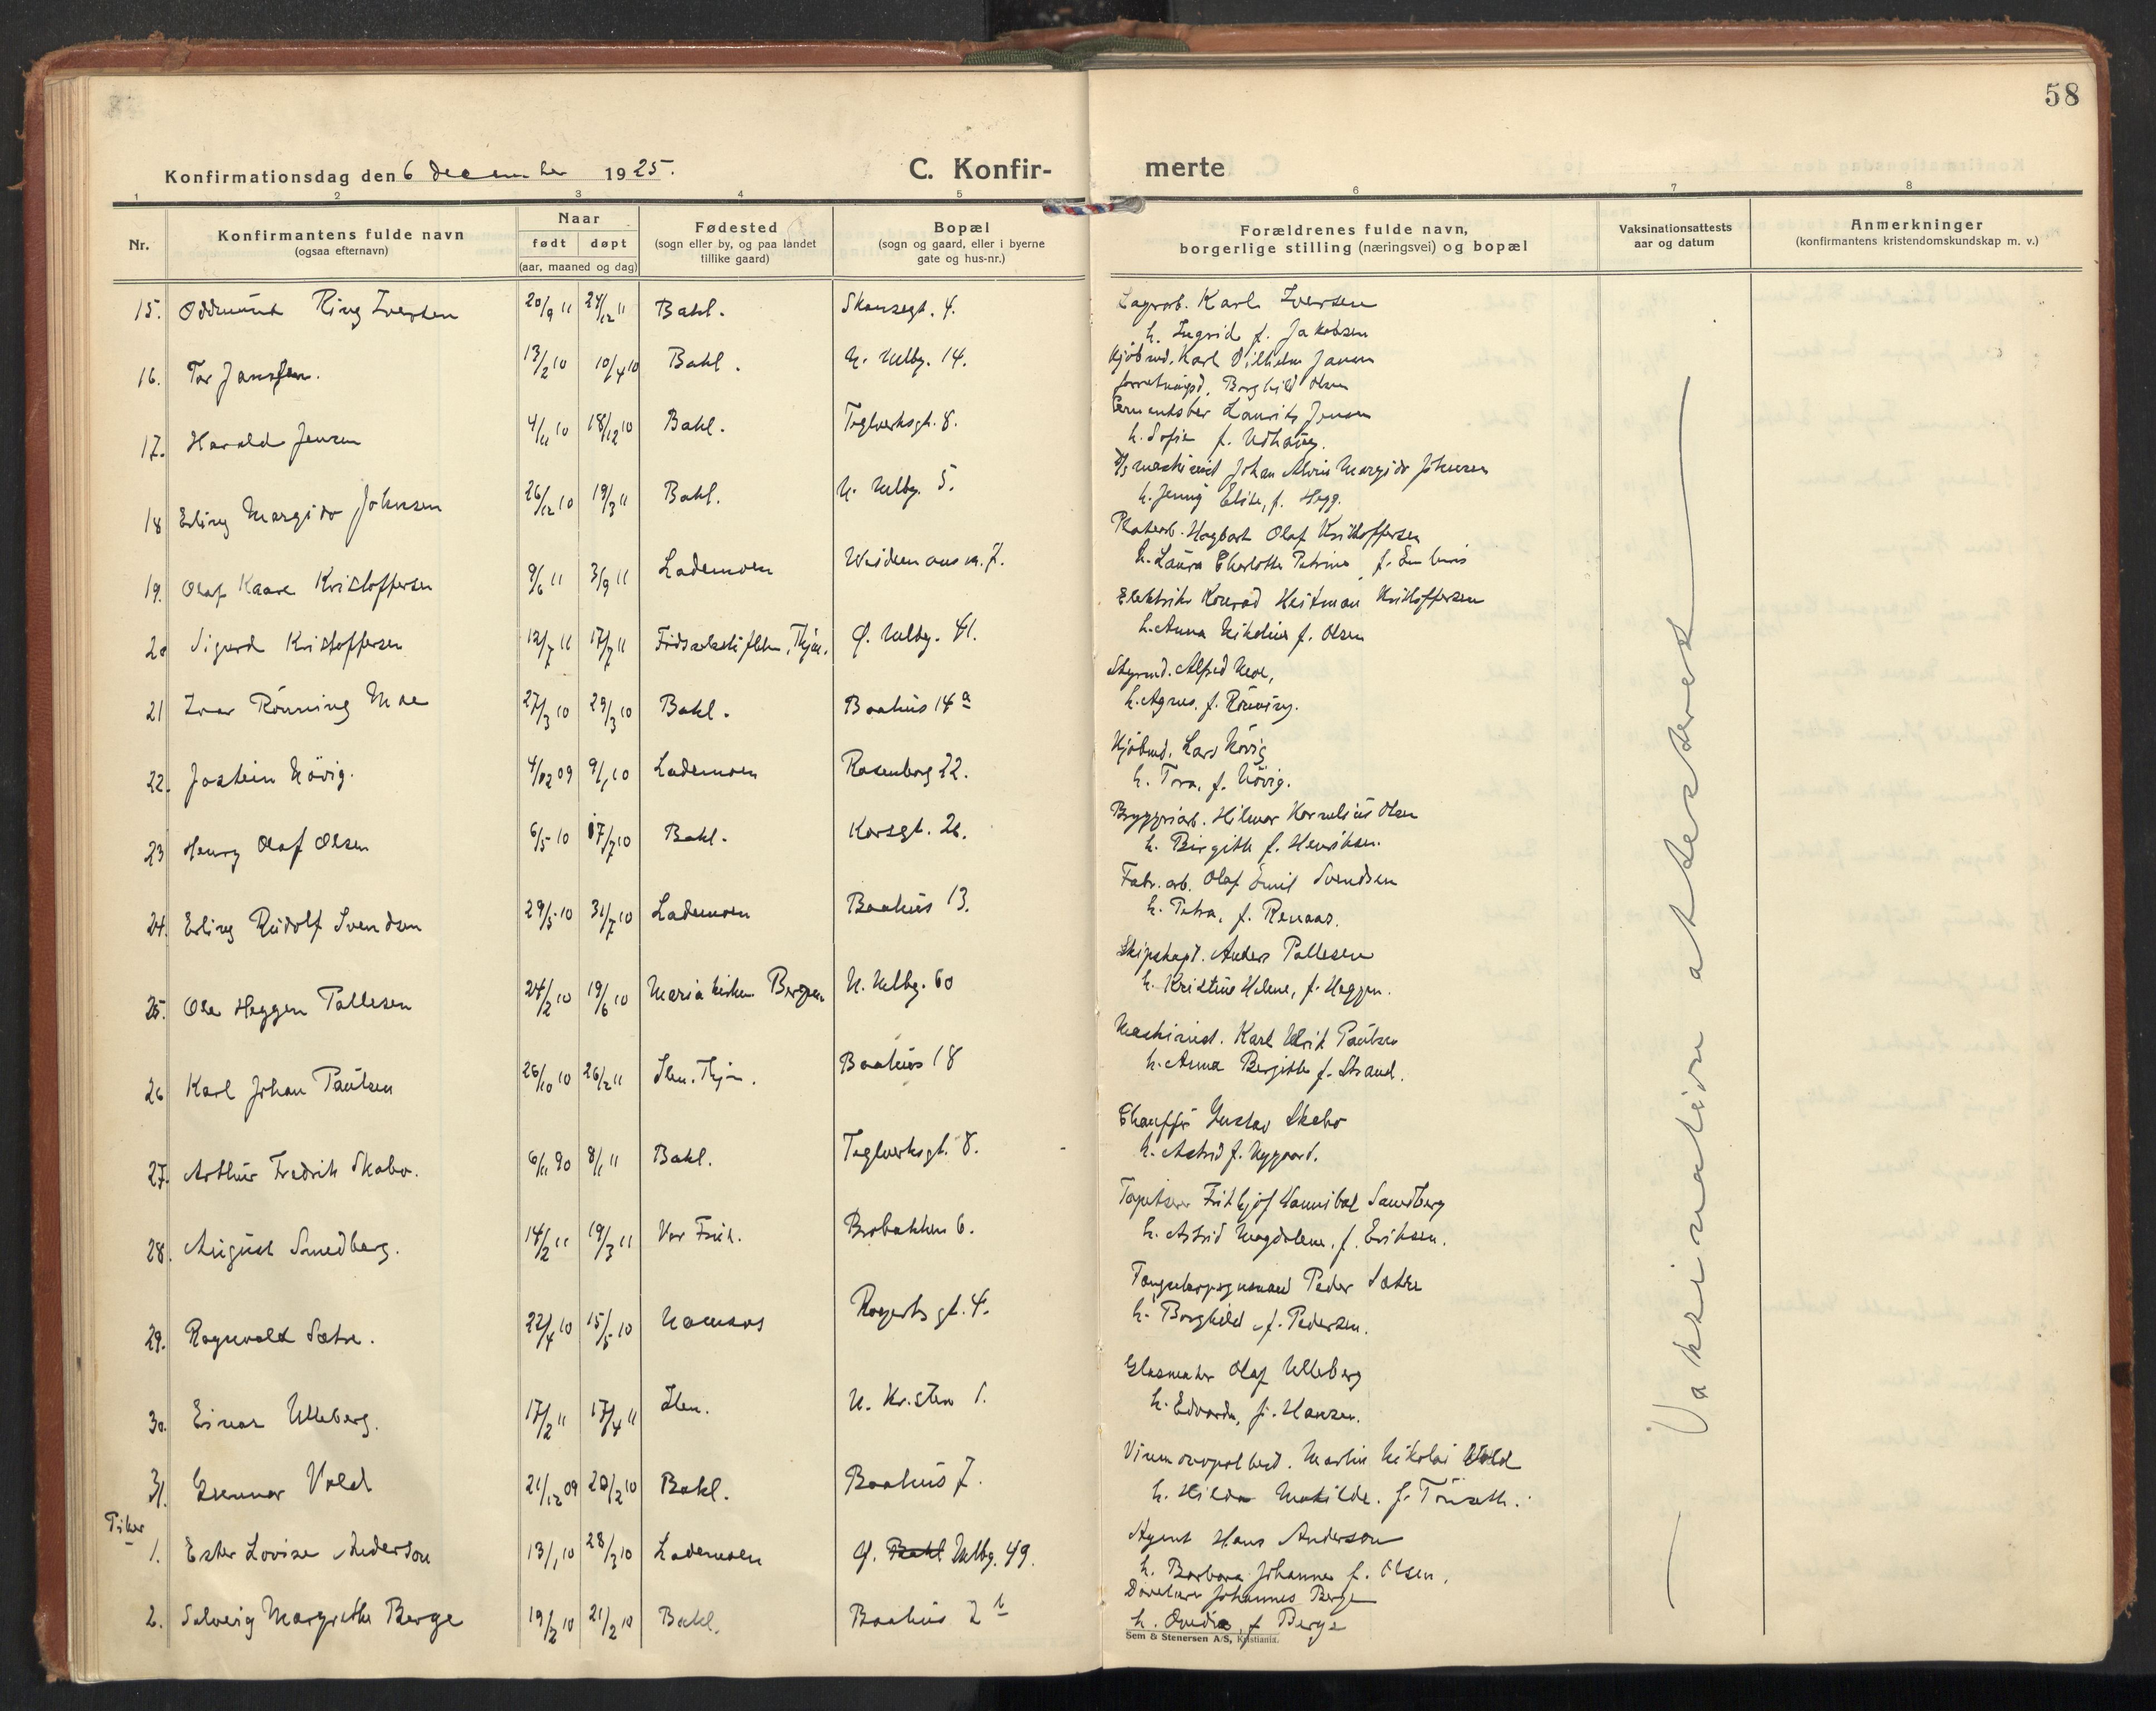 58
Konfirmationsdag den 6 december 1925.
C. Konfir- merte
1 2 3 4 5 6 7 8
Nr.
Konfirmantens fulde navn
(ogsaa efternavn)
Naar
født døpt
(aar, maaned og dag)
Fødested
(sogn eller by, og paa landet
tillike gaard)
Bopæl
(sogn og gaard, eller i byerne
gate og hus-nr.)
Forældrenes fulde navn,
borgerlige stilling (næringsvei) og bopæl
Vaksinationsattests
aar og datum
Anmerkninger
(konfirmantens kristendomskundskap m. v.)
15. Oddmund Ring Iversen 20/9 11 24/12 11 Bakl. Skansegt. 4. Lagerarb. Karl Iversen
h. Ingrid f. Jakobsen
16. Tor Janssen. 13/2 10 10/4 10 Bakl. N. Mølbg. 14. Kjøbmd. Karl Vilhelm Jansen
forretningsd. Borghild Olsen
17. Harald Jensen 4/11 10 18/12 10 Bakl. Teglverksgt. 8. Laurits Jensen
h. Sofie f. Udhaug.
18 Erling Margido Johnsen 26/12 10 19/3 11 Bakl. N. Mølbg. 5. maskinist Johan Alvin Margido Johnsen
h. Jenny Elise, f. Hegg.
19. Olaf Kaare Kristoffersen 9/6 11 3/9 11 Lademoen Weidemannsv. 7. Platearb. Hagbart Olaf Kristoffersen
h. Laura Charlotte Petrine f.
20 Sigurd Kristoffersen 12/7 11 17/7 11 Fødselsstiftelsen, Thjem. Ø. Mølbg. 41. Elektriker Konrad Heitman Kristoffersen
h. Anna Nikoline f. Olsen
21 Ivar Rönning Moe 27/3 10 29/3 10 Bakl. Baahus 14 a Styrmd. Alfred Moe,
h. Agnes. f. Rönning.
22. Jostein Hövig. 4/12 09 9/1 10 Lademoen Rosenborg 22. Kjöbmd. Lars Hövig
h. Tora, f. Hövig.
23 Henry Olaf Olsen 6/5 10 17/7 10 Bakl. Korsgt. 26. Bryggeriarb. Hilmar Kornelius Olsen
h. Birgitte f. Henriksen.
24. Erling Rudolf Svendsen 29/5 10 31/7 10 Lademoen Baahus 13. Fabr. arb. Olaf Emil Svendsen
h. Petra, f. Renaas.
25. Ole Heggen Pallesen 24/2 10 19/6 10 Mariakirken Bergen N. Mølbg. 60 Skipskapt. Anders Pallesen
h. Kristine Helene, f. Heggen.
26 Karl Johan Paulsen 26/10 10 26/2 11 Ilen. Thjm. Baahus 18 Maskinist. Karl Ulrik Paulsen
h. Anna Bergitte f. Strand.
27. Arthur Fredrik Skabo. 6/11 90 8/1 11 Bakl. Teglverksgt. 8. Chauffør Gustav Skabo
h. Astrid f. Nygaard.
28. August Smedberg. 14/2 11 19/3 11 Vor Frue. Brobakken 6. Tapetserer Frithjof Hannibal Smedberg
h. Astrid Magdalene, f. Eriksen.
29. Ragnvald Sætre. 22/4 10 15/5 10 Namsos Rogerts gt. 4. Peder Sætre
h. Borghild f. Pedersen.
30. Einar Ulleberg. 17/2 11 17/4 11 Ilen. N. Kr.sten 1. Glasmester Olaf Ulleberg
h. Edvarda, f. Hansen.
31. Gunnar Vold 21/12 09 20/2 10 Bakl. Baahus 7. Vinmonopolbest. Martin Nikolai Vold
h. Hilda Matilde. f. Tönseth.
Piker
1. Ester Lovise Anderson 13/1 10 28/3 10 Lademoen Ø. Bakl Mølbg. 49. Agent Hans Anderson
h. Barbara Johanne f. Olsen.
2. Solveig Margrethe Berge 19/2 10 21/2 10 Bakl. Baahus 2 b Johannes Berge
h. Ovedia, f Berge
Vaksination attesteret
Sem & Stenersen A/S, Kristiania.